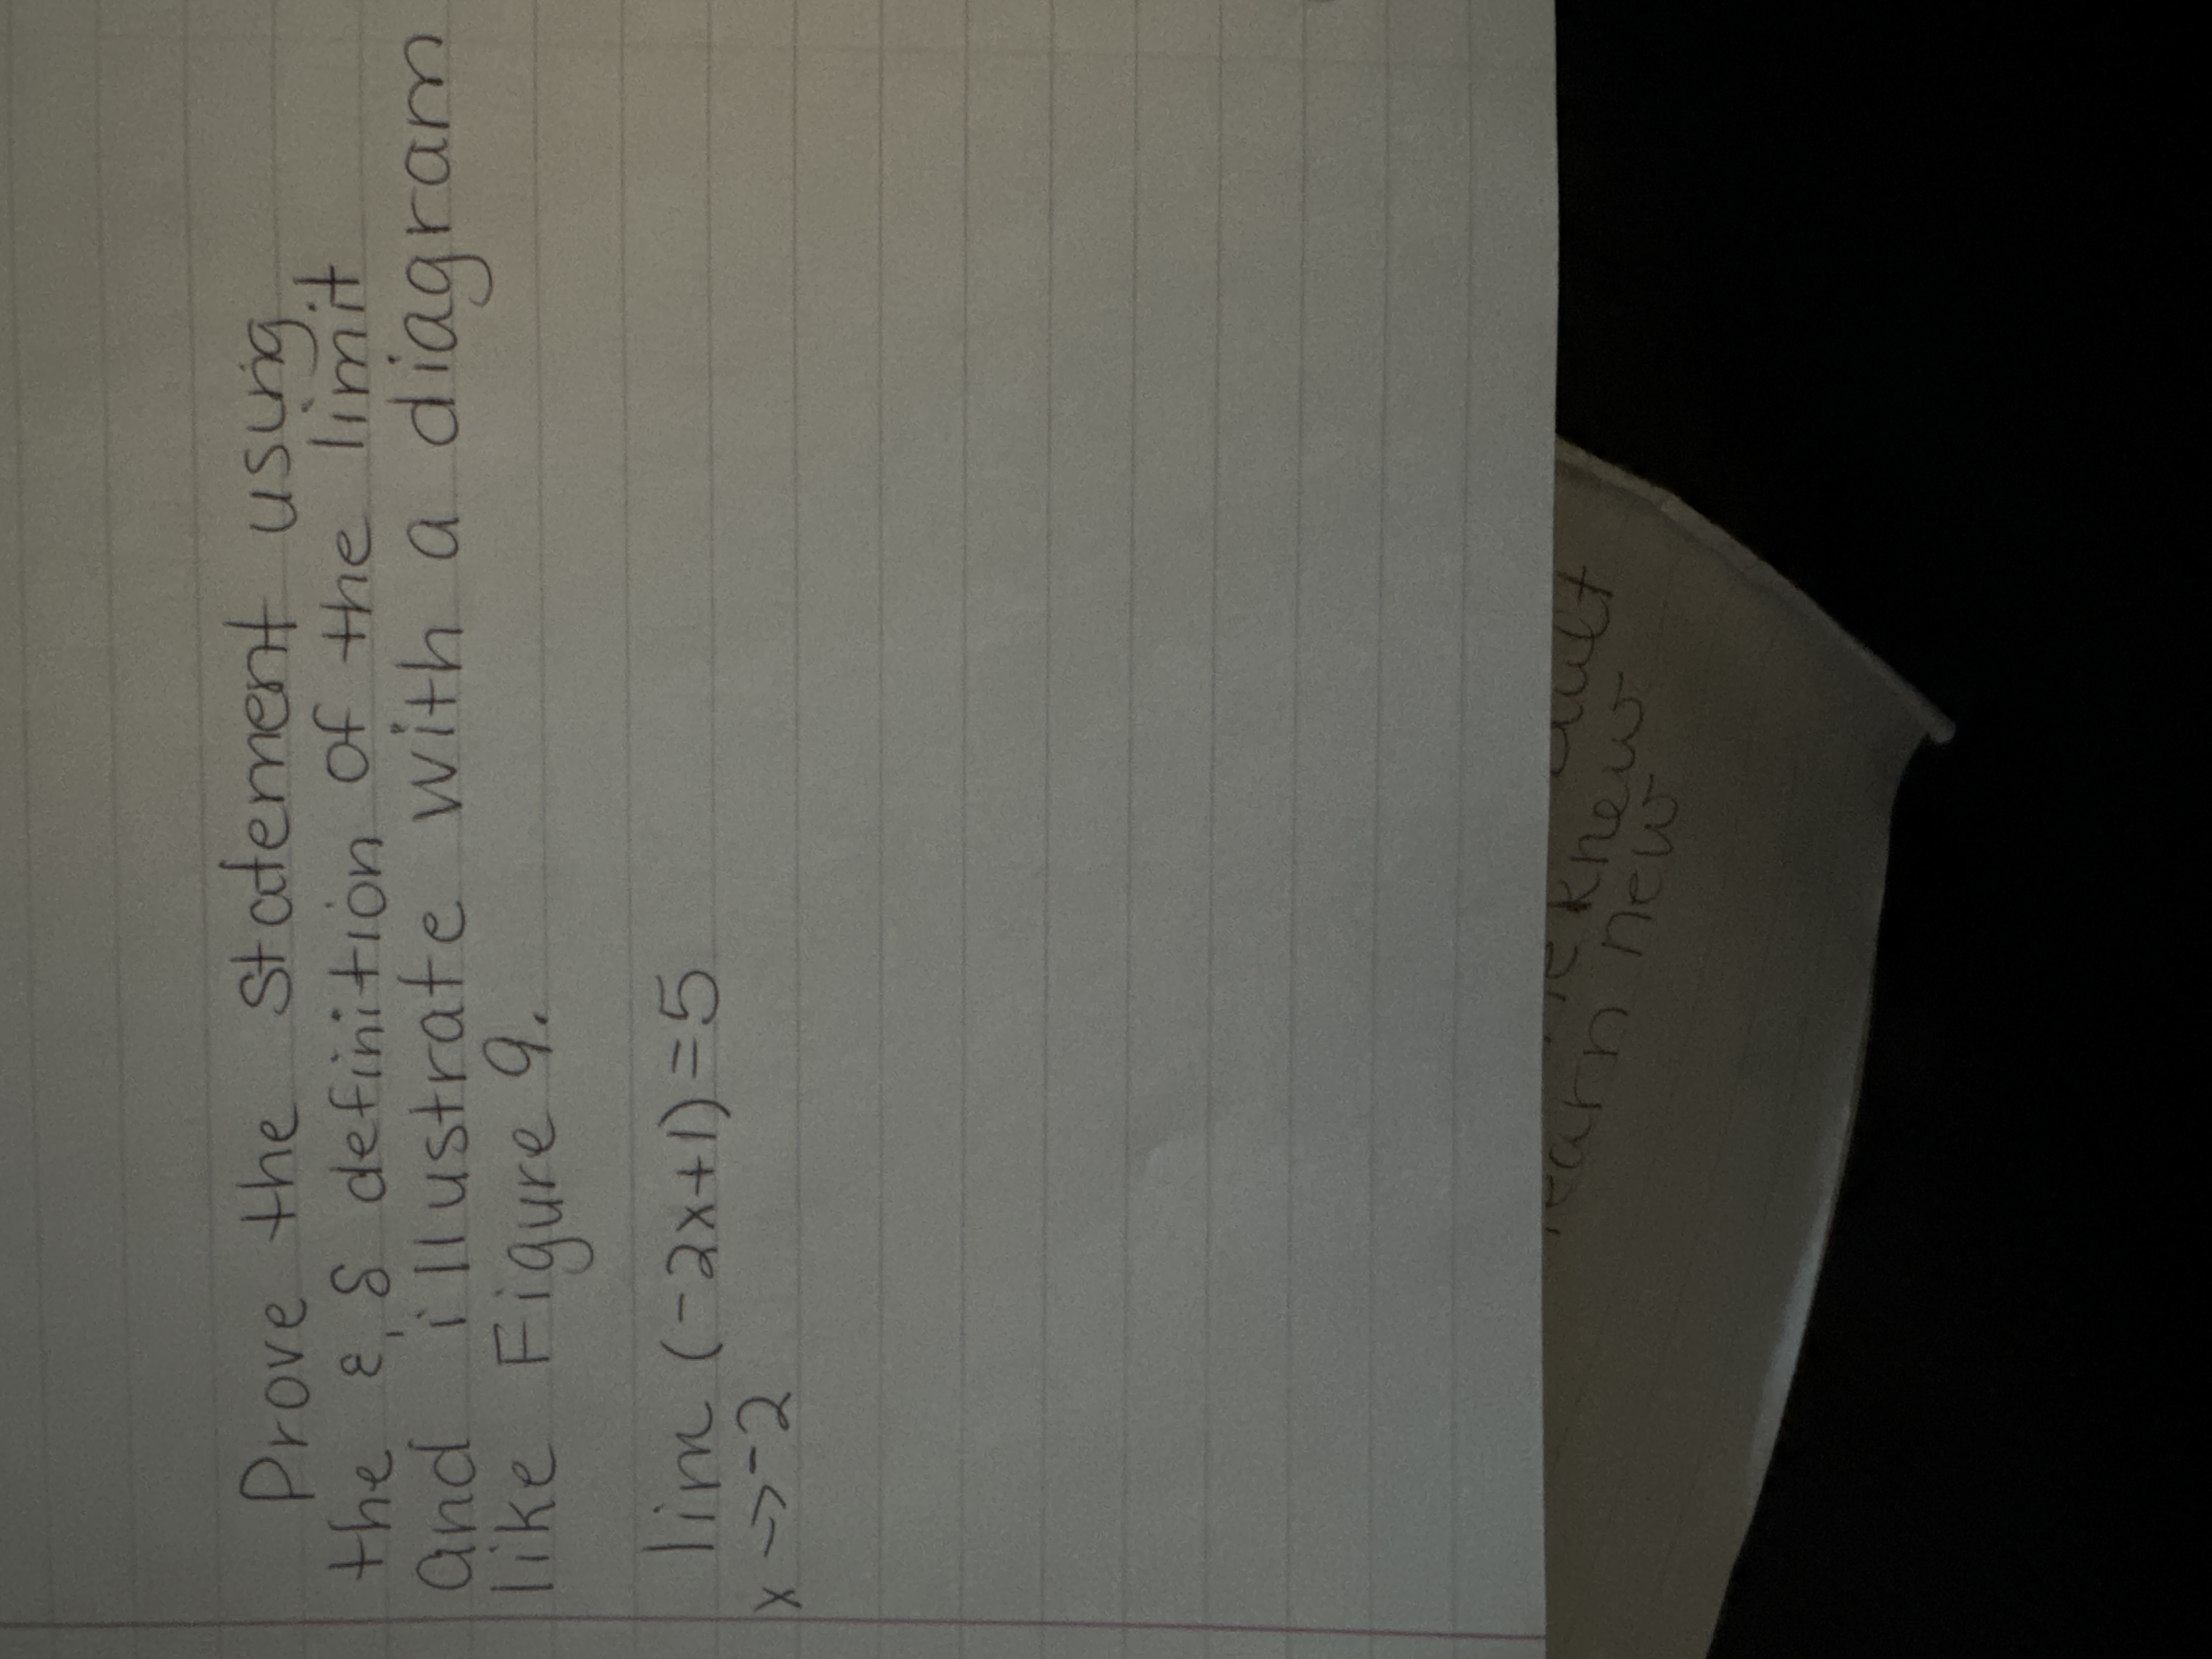 Prove the statement using
the ε, δ definition of the limit
and illustrate with a diagram
like Figure 9.
lim (-2x+1)=5
x->-2
knew
learn new